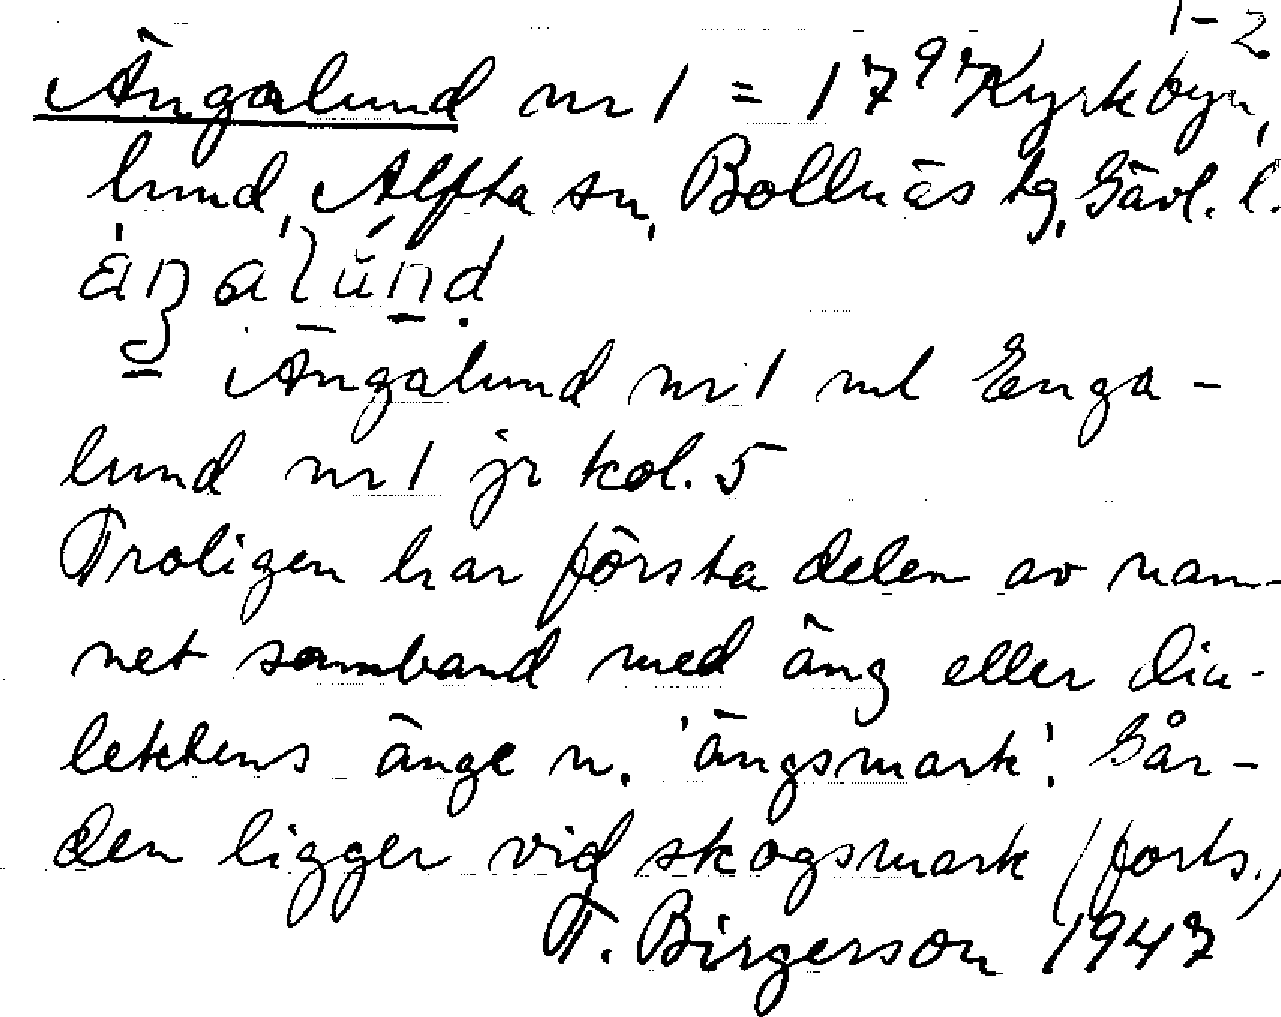 1-2
Ängalund nr 1 = 17⁹⁷ Kyrkbyn,
lund, Alfta sn, Bollnäs tg, Gävl. l.
Ängalund nr 1 ml Enga-
lund nr 1 jr kol. 5
Troligen har första delen av nam-
net samband med äng eller dia-
lektens änge n. 'ängsmark'. Går-
den ligger vid skogsmark (forts.)
T. Birgerson 1947